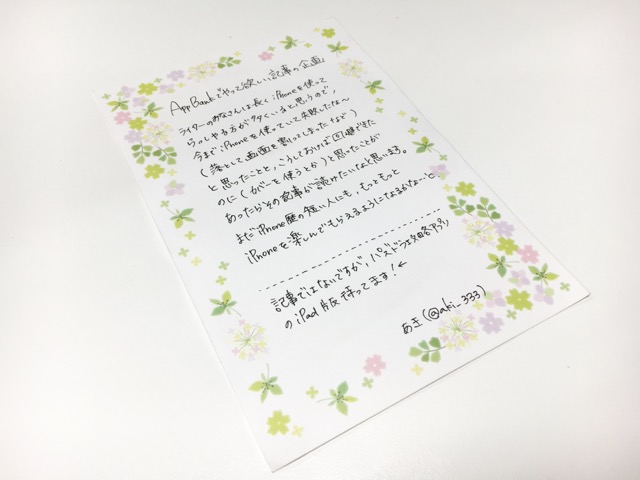 AppBankでやって欲しい記事の企画
ライターのみなさんは長くiPhoneを使って
らっしゃる方が多くいると思うので、
今までiPhoneを使っていて失敗したな〜
(落として画面を割ってしまったなど)
と思ったことと、こうしておけば回避できた
のに(カバーを使うとか)と思ったことが
あったらその記事が読みたいなと思います。
まだiPhone歴の短い人にも、もっともっと
iPhoneを楽しんでもらえるようになるかな…と
記事ではないですが、パズドラ攻略アプリ
のiPad版待ってます!
あき(@aki_333)